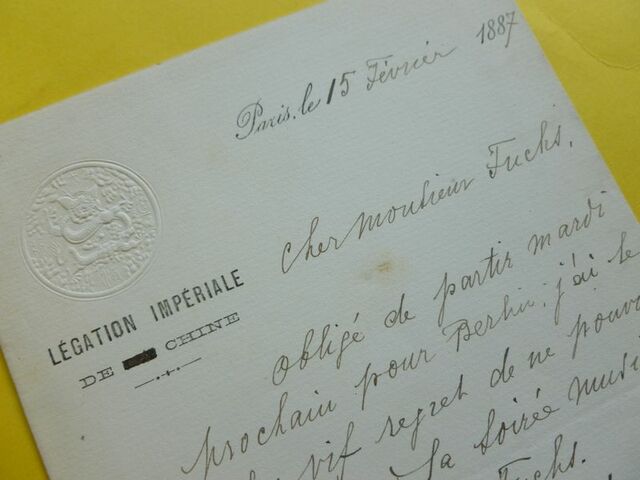 Paris, le 15 Février 1887
LÉGATION IMPÉRIALE
DE CHINE
Cher Monsieur Fuchs,
obligé de partir mardi
prochain pour Berlin, j'ai le
vif regret de ne pouvo
la soirée musi
Fuchs.